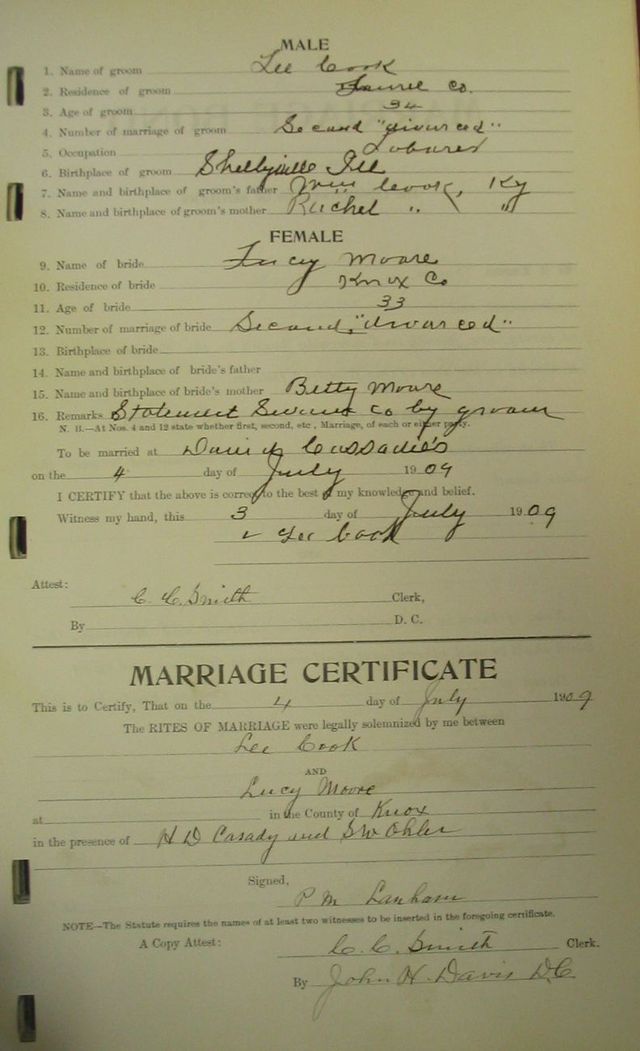 MALE
1. Name of groom Lee Cook
2. Residence of groom Laurel Co.
3. Age of groom 34
4. Number of marriage of groom Second "divorced"
5. Occupation Laborer
6. Birthplace of groom Shelbyville Ill
7. Name and birthplace of groom's father Wm Cook, Ky
8. Name and birthplace of groom's mother Rachel " "
FEMALE
9. Name of bride Lucy Moore
10. Residence of bride Knox Co
11. Age of bride 33
12. Number of marriage of bride Second, "divorced"
13. Birthplace of bride
14. Name and birthplace of bride's father
15. Name and birthplace of bride's mother Betty Moore
16. Remarks Statement Sworn to by groom
N. B.—At Nos. 4 and 12 state whether first, second, etc., Marriage, of each or either party.
To be married at Cassadie's
on the 4 day of July 1909
I CERTIFY that the above is correct to the best of my knowledge and belief.
Witness my hand, this 3 day of July 1909
Lee Cook
Attest:
C. C. Smith Clerk,
By D. C.
MARRIAGE CERTIFICATE
This is to Certify, That on the 4 day of July 1909
The RITES OF MARRIAGE were legally solemnized by me between
Lee Cook
AND
Lucy Moore
at in the County of Knox
in the presence of H D Casady and S W Ohler
Signed,
P M Lanham
NOTE—The Statute requires the names of at least two witnesses to be inserted in the foregoing certificate.
A Copy Attest: C. C. Smith Clerk.
By John H. Davis D.C.